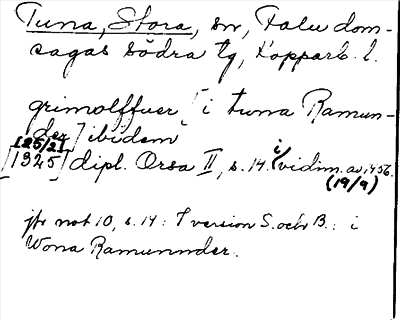 Tuna, Stora, sn, Falu dom-
sagas södra tg, Kopparb. l.
grimolffuer [ i tuna Ramun-
der ] ibidem
[25/2]
[1325] dipl. Orsa II, s. 14. i vidim. av 1456.
(19/9)
jfr not 10, s. 14: I version S. och B.: i
Wona Ramunnder.